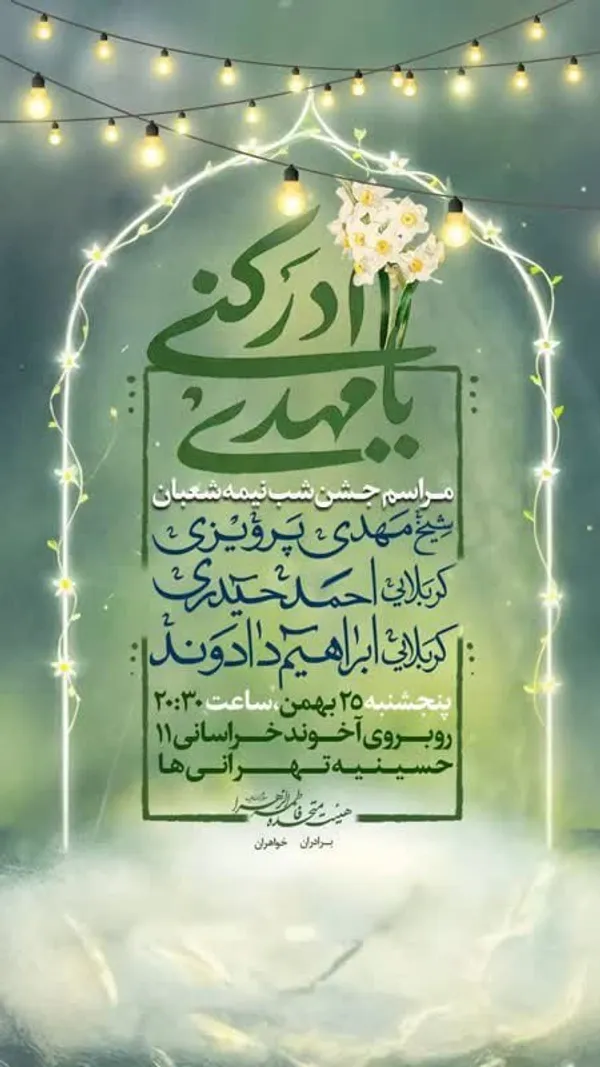 یا مهدی ادرکنی
مراسم جشن شب نیمه شعبان
شیخ مهدی پرویزی
کربلایی احمد حیدری
کربلایی ابراهیم دادوند
پنجشنبه ۲۵ بهمن، ساعت ۲۰:۳۰
روبروی آخوند خراسانی ۱۱
حسینیه تهرانی ها
هیئت متحده فاطمة الزهرا
برادران خواهران